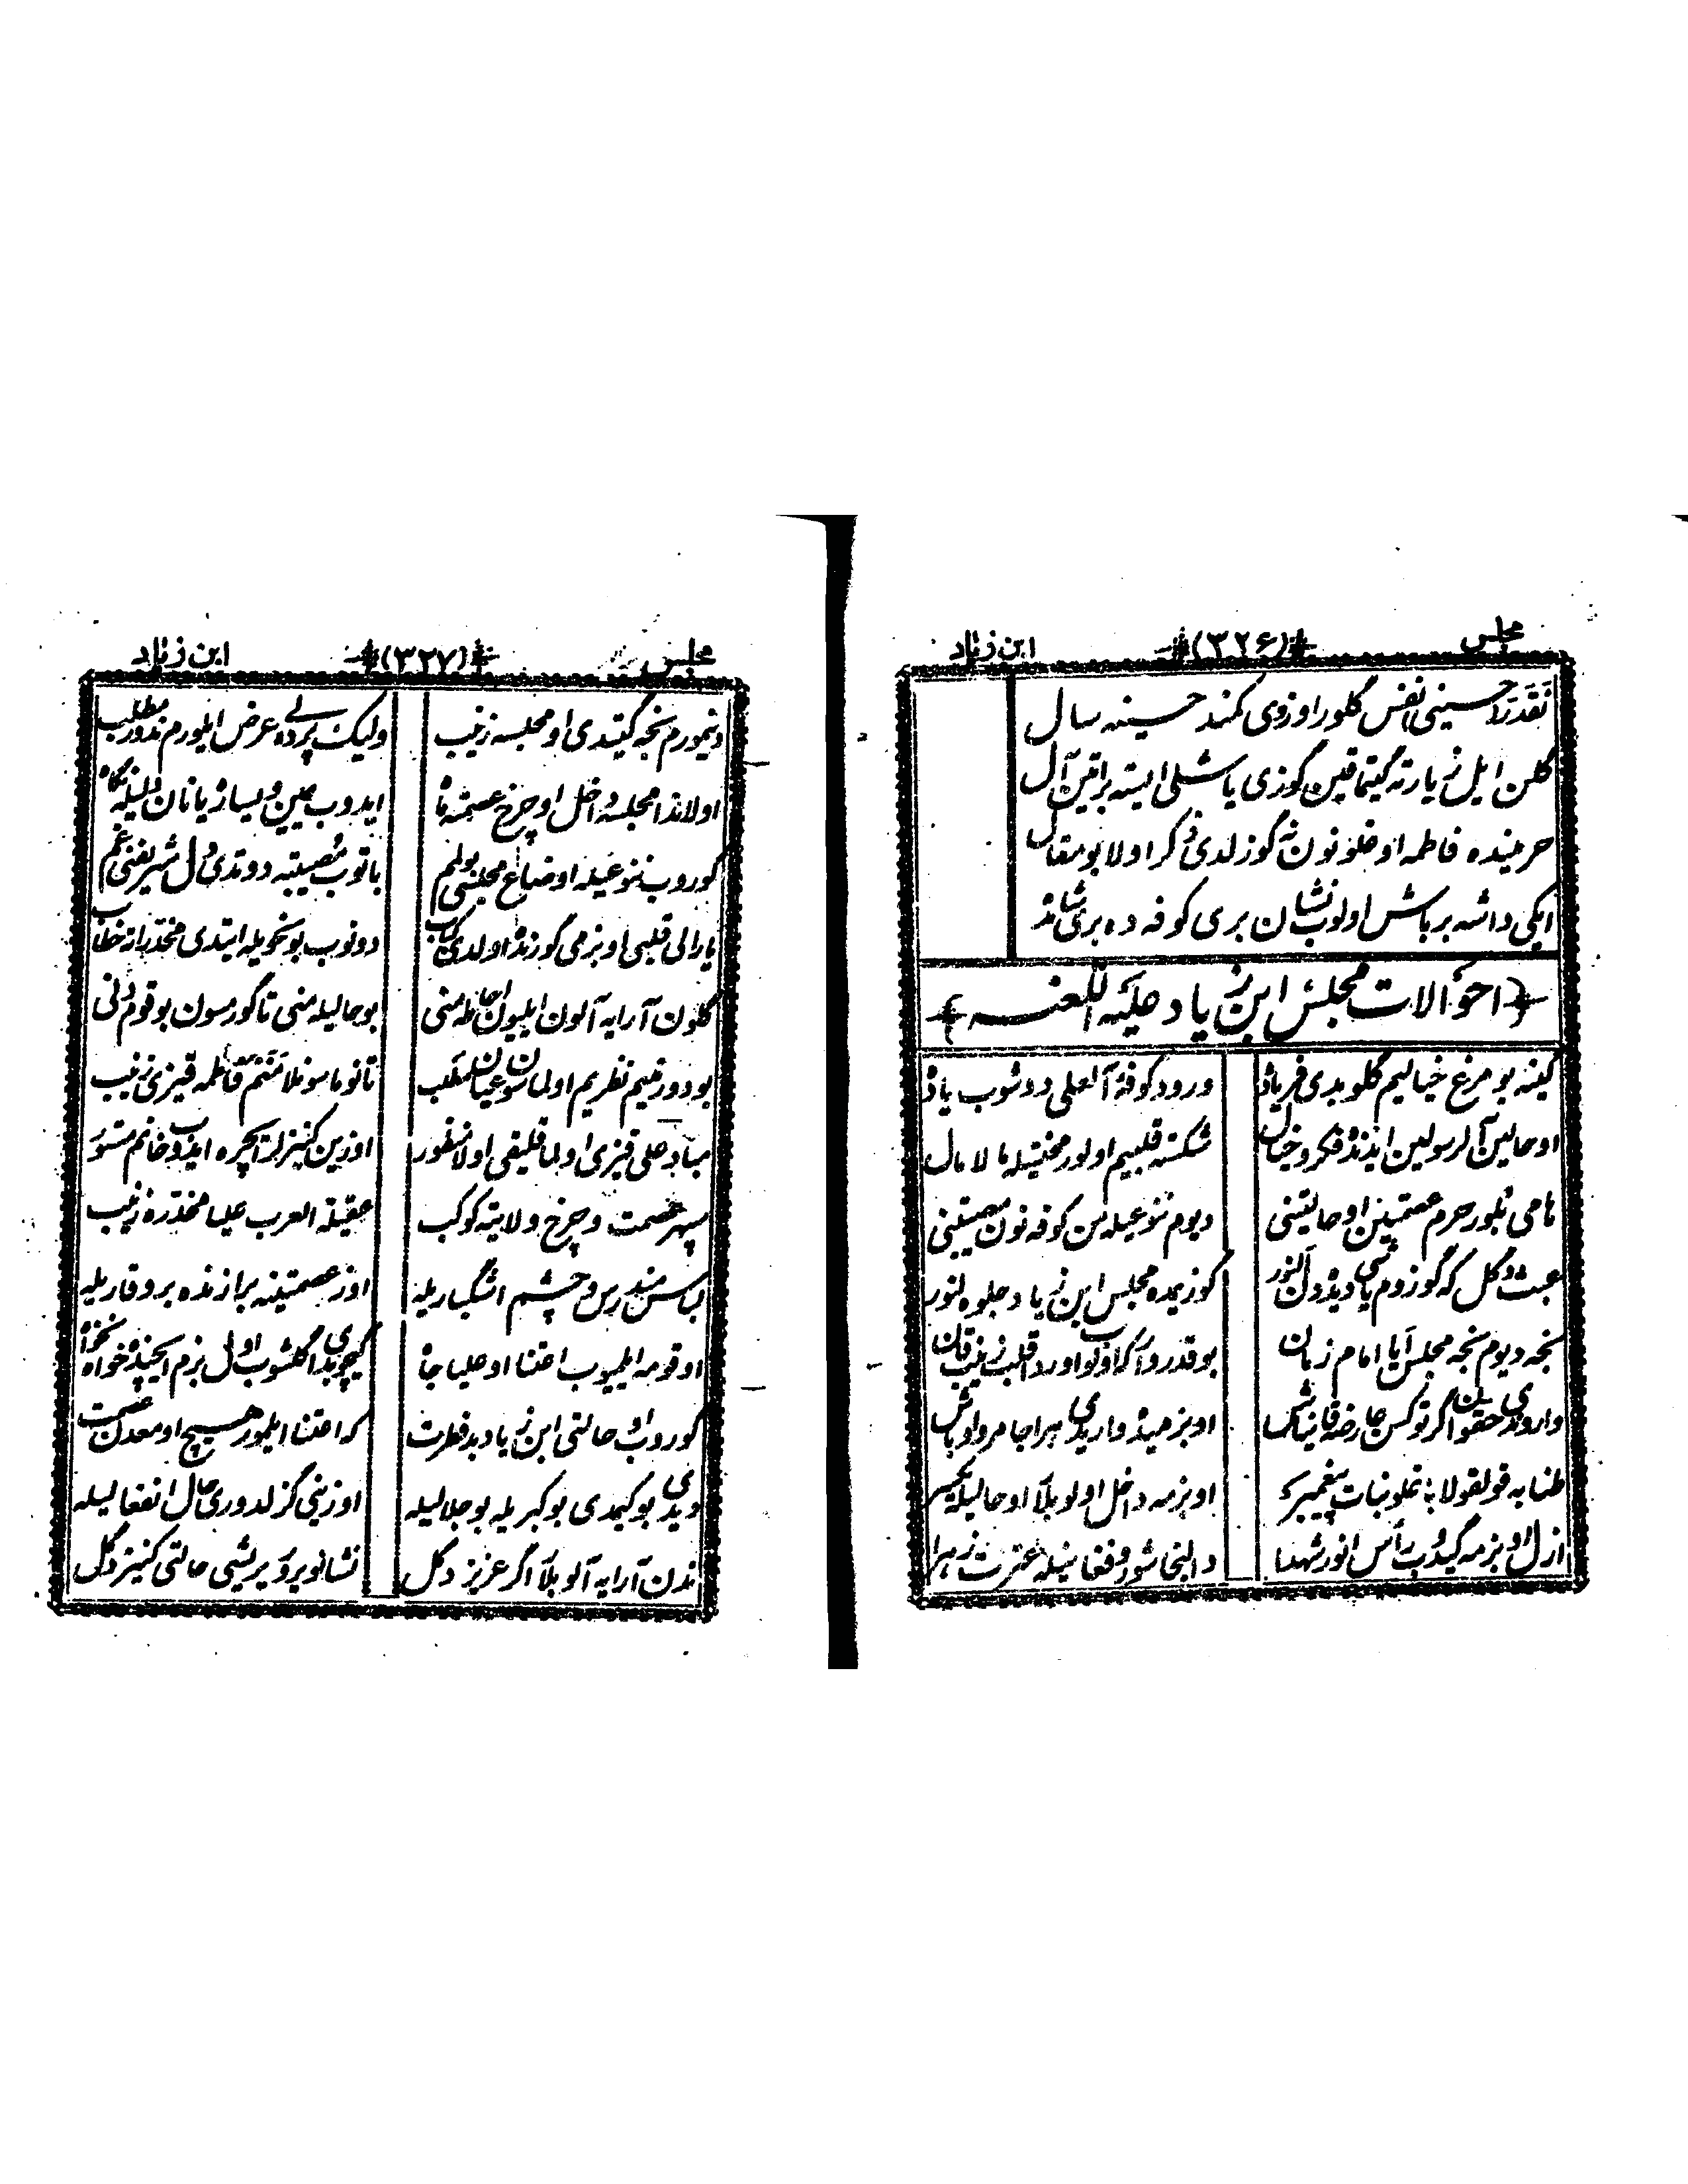 مجلس (۳۲۶) ابن زیاد
نقدر حسینی نفس گلور اوزوی کمند حسینه سال
گلن ایل زیارته گیتماقین گوزی یاشلی ایسته براتین آل
حرمینده فاطمه اوغلونون نه گوزلدی ذکر اولا بو مقال
ایکی داشه بر باش اولوب نشان بری کوفه ده بری شامده
احوالات مجلس ابن زیاد علیه اللعنه
گینه بو مرغ خیالیم گلوبدی فریاده
ورود کوفهٔ آل علی دوشوب یاده
او حالین آل رسولین ایدنده فکر و خیال
شکسته قلبیم اولور محنتیله مالامال
هامی بلور حرم عصمتین او حالیتینی
دیوم نه نوعیله من کوفه نون مصیبتینی
عبث دگل که گوزوم یاشی دیده دن النور
گوزیمده مجلس ابن زیاد جلوه لنور
نجه دیوم نجه مجلس ایا امام زمان
بوقدر وار که اولوب اوردا قلب زینب قان
واروندی حقون اگر توکسن عارضه قانیاش
او بزمیده واریدی هر اجامر و اوباش
طنابه قولقولا باغلو بنات پیغمبر
او بزمه داخل اولوبلا او حالیله یکسر
ازل او بزمه گیدوب رأس انور شهدا
دالنجا شور و فغانیله عترت زهرا
مجلس (۳۲۷) ابن زیاد
دیمورم نجه گیتدی او مجلسه زینب
ولیک پرده لی عرض ایلورم ندور مطلب
اولاندا مجلسه داخل او چرخ عصمته ماه
ایدوب یمین و یساره یانان دلیله نگاه
گوروب نه نوعیله اوضاع مجلسی بولم
باتوب مصیبته دوتدی دل شریفنی غم
یارالی قلبی او بزمی گورنده اولدی کباب
دونوب بو نحویله ایتدی مخدراته خطاب
گلون آرایه آلون ایلیون احاطه منی
بو حالیله منی تا گورمسون بو قوم دنی
بودور منیم نظریم اولماسون عیان مطلب
تانوماسونلا منم فاطمه قیزی زینب
مباد علی قیزی اولماقلیقی اولا منظور
اوزین کنیزلر آیچره ایدوب خانم مستور
سپهر عصمت و چرخ ولایته کوکب
عقیلة العرب علیا مخدره زینب
لباس مندرس و چشم اشگباریله
اوز عصمتینه برازنده بر وقاریله
او قومه ایلمیوب اعتنا او علیا جاه
گیچوبدی اگلشوب اول بزم ایچنده خواه نخواه
گوروب او حالتی ابن زیاد بد فطرت
که اعتنا ایلمور هیچ او معدن عصمت
دیدی بو کیمدی بو کبریله بو جلالیله
اوزینی گزلدوری حال انفعالیله
ندن آرایه آلوبلا اگر عزیز دگل
نشانویرور یریشی حالتی کنیز دگل